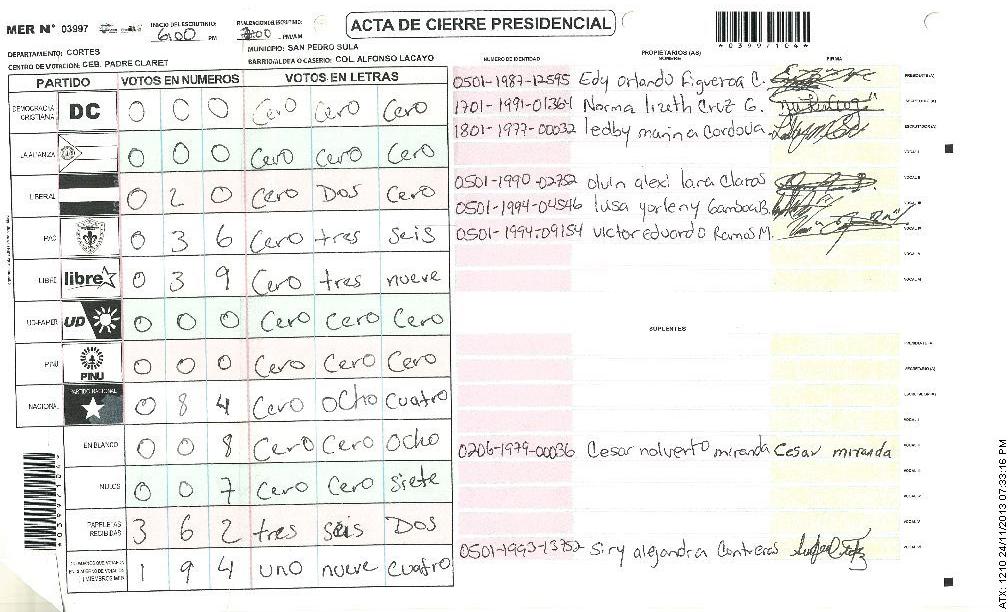 MER N° 03997
INICIO DEL ESCRUTINIO: 6:00 PM
FINALIZACION DEL ESCRUTINIO: :00 PM/AM
ACTA DE CIERRE PRESIDENCIAL
*03997104*
DEPARTAMENTO: CORTES
MUNICIPIO: SAN PEDRO SULA
CENTRO DE VOTACION: CEB. PADRE CLARET
BARRIO/ALDEA O CASERIO: COL ALFONSO LACAYO
PARTIDO VOTOS EN NUMEROS VOTOS EN LETRAS
DEMOCRACIA CRISTIANA DC 0 0 0 Cero Cero Cero
LA ALIANZA 0 0 0 Cero Cero Cero
LIBERAL 0 2 0 Cero Dos Cero
PAC 0 3 6 Cero tres seis
LIBRE libre 0 3 9 Cero tres nueve
UD-FAPER UD 0 0 0 Cero Cero Cero
PINU PINU 0 0 0 Cero Cero Cero
NACIONAL PARTIDO NACIONAL 0 8 4 Cero ocho cuatro
EN BLANCO 0 0 8 Cero Cero ocho
NULOS 0 0 7 Cero Cero siete
PAPELETAS RECIBIDAS 3 6 2 tres seis Dos
1 9 4 uno nueve cuatro
PROPIETARIOS (AS)
NUMERO DE IDENTIDAD NOMBRE FIRMA
0501-1987-12595 Edy orlando Figueroa C. PRESIDENTE(A)
1701-1991-01364 Norma lizeth Cruz G. SECRETARIO(A)
1801-1977-00032 ledby marina Cordova. ESCRUTADOR(A)
VOCAL I
0501-1990-02752 olvin alexi lara Claros VOCAL II
0501-1994-04546 lusa yorleny Gamboa B. VOCAL III
0501-1994-09154 victor eduardo Ramos M. VOCAL IV
VOCAL V
VOCAL VI
SUPLENTES
PRESIDENTE(A)
SECRETARIO(A)
ESCRUTADOR(A)
VOCAL I
0206-1979-00036 Cesar nolverto miranda Cesar miranda VOCAL II
VOCAL III
VOCAL IV
VOCAL V
0501-1993-13752 Siry alejandra Contreras VOCAL VI
*03997104*
ATX: 1210 24/11/2013 07:33:16 PM